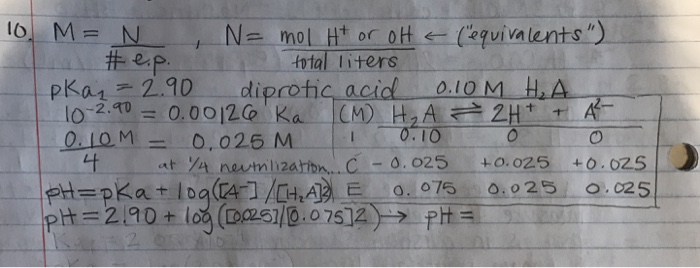 10. M = N / # e.p. , N = mol H⁺ or OH / total liters ← ("equivalents")
pKa₁ = 2.90 diprotic acid 0.10 M H₂A
10^-2.90 = 0.00126 Ka (M) H₂A ⇌ 2H⁺ + A²⁻
0.10 M / 4 = 0.025 M I 0.10 0 0
at 1/4 neutrilization... C - 0.025 +0.025 +0.025
pH = pKa + log([A⁻]/[H₂A]²) E 0.075 0.025 0.025
pH = 2.90 + log([0.025]/[0.075]2) → pH =